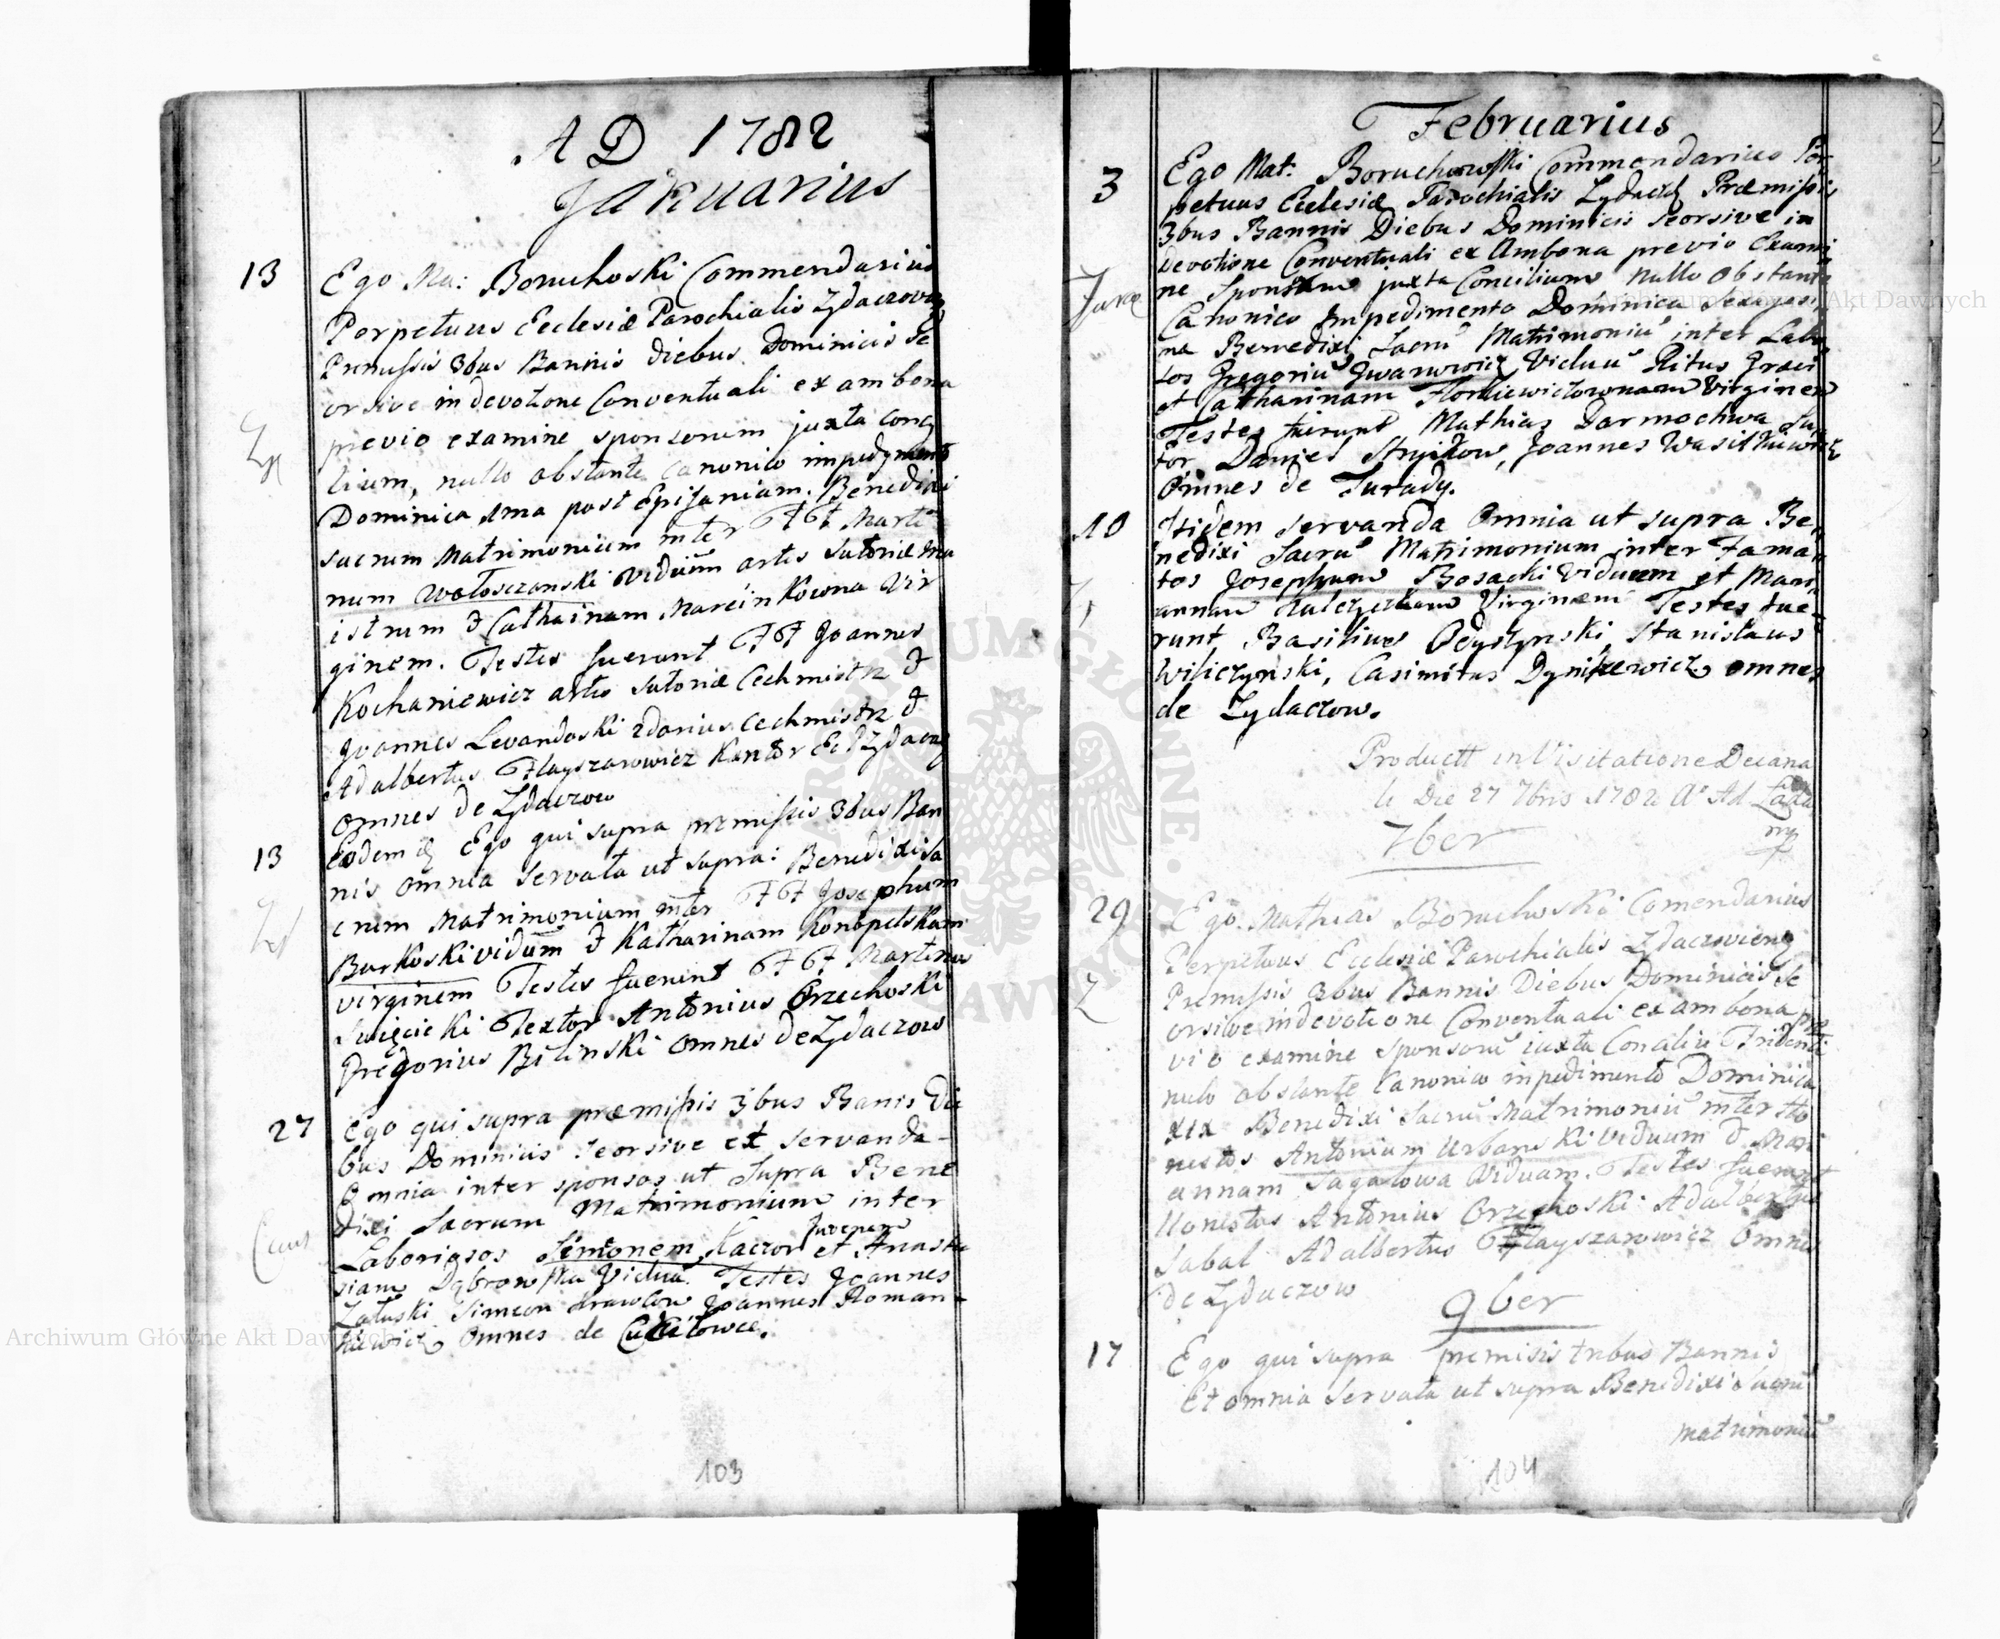 A D 1782
Januarius
13
Ego Ma: Boruchoski Commendarius
Perpetuus Ecclesiæ Parochialis Zydaczovieñ
Premissis 3bus Bannis diebus Dominicis Se
orsive in devotione Conventuali ex ambona
previo examine sponsorum juxta Conci
lium, nullo obstante Canonico impedymento
Dominica 1ma post Epifaniam. Benedixi
sacrum Matrimonium inter FF Marti
num Wołosczanski viduum artis Sutoriæ Ma
istrum & Catharinam Marcinkowna Vir
ginem. Testes fuerunt FF Joannes
Kochaniewicz artis Sutoriæ Cechmistrz &
Joannes Levandoski 2darius Cechmistrz &
Adalbertus Flayszarowicz Kantor Ec Zydacz
omnes de Zydaczow
13
Eodem Ego qui supra premissis 3bus Ban
nis omnia servata ut supra: Benedixi Sa
crum Matrimonium inter FF Josephum
Burkoski viduum & Katharinam Konopelskam
virginem Testes fuerunt FF Martinus
Święcicki Textor Antonius Orzechoski
Gregorius Bilinski omnes de Zydaczow
27
Ego qui supra præmissis 3bus Banis Die
bus Dominicis seorsive et servanda
Omnia inter sponsos ut Supra Bene
dixi Sacrum Matrimonium inter
Juvenem
Laboriosos Simonem Kaczor et Anasta
siam Dąbrowska Viduã. Testes Joannes
Załuski Simeon Krawców Joannes Roman
kiewicz omnes de Cucułowce.
103
Februarius
3
Ego Mat: Boruchowski Commendarius Per
petuus Ecclesiæ Parochialis Zydacz Præmissis
3bus Bannis Diebus Dominicis seorsive in
devotione Conventuali ex Ambona previo Exami
ne Sponsorum juxta Concilium Nullo Obstante
Canonico Impedimento Dominica Sexagesi
ma Benedixi Sacrũ Matrimoniũ inter Labo
sos Gregoriũ Jwanowicz Viduũ Ritus Græci
et Catharinam Virginem
Testes fuerunt Mathias Darmochwa Su
tor Daniel Stryikow, Joannes Wasilkiewicz
Omnes de Turady.
10
Itidem servanda Omnia ut supra Be
nedixi Sacrũ Matrimonium inter Fama
tos Josephum Bosacki Viduum et Mari
annam Virginem Testes fue
runt Basilius Stanislaus
Wiliczynski, Casimirus Dynikewicz omnes
de Zydaczow.
Productt in Visitatione Decana
li Die 27 7bris 1782 Aº
mp
7ber
29
Ego Mathias Boruchoski Comendarius
Perpetuus Ecclesiæ Parochialis Zydaczovieñ
Premissis 3bus Bannis Diebus Dominicis Se
orsive in devotione Conventuali ex ambona præ
vio examine Sponsorũ iuxta Conciliũ Tridenti
nulo obstante Canonico inpedimento Dominica
XIX Benedixi Sacrũ Matrimoniũ inter Ho
nestos Antonium Urbanski viduum & Mari
annam Sagatowa Viduam. Testes fuerunt
Honestus Antonius Orzechoski Adalbertus
Sabat Adalbertus Flayszarowicz Omnes
de Zydaczow
9ber
17
Ego qui supra premisis tribus Bannis
Et omnia Servata ut supra Benedixi Sacrũ
matrimoniũ
104
Archiwum Główne Akt Dawnych
Archiwum Główne Akt Dawnych
ARCHIWUM GŁÓWNE AKT DAWNYCH